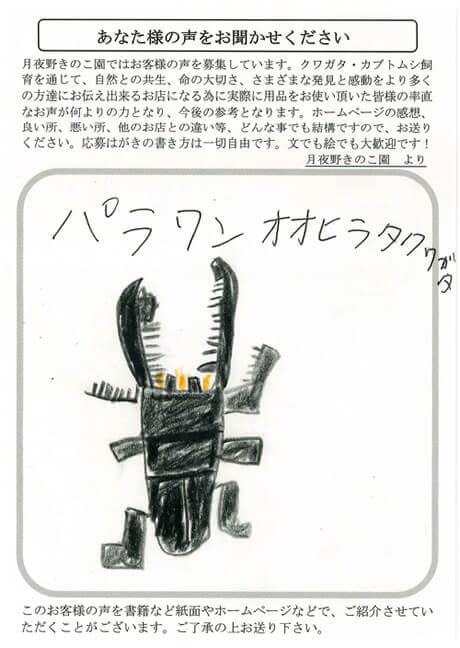 あなた様の声をお聞かせください
月夜野きのこ園ではお客様の声を募集しています。クワガタ・カブトムシ飼
育を通じて、自然との共生、命の大切さ、さまざまな発見と感動をより多く
の方達にお伝え出来るお店になる為に実際に用品をお使い頂いた皆様の率直
なお声が何よりの力となり、今後の参考となります。ホームページの感想、
良い所、悪い所、他のお店との違い等、どんな事でも結構ですので、お送り
ください。応募はがきの書き方は一切自由です。文でも絵でも大歓迎です！
月夜野きのこ園　より
パラワンオオヒラタクワガタ
このお客様の声を書籍など紙面やホームページなどで、ご紹介させてい
ただくことがございます。ご了承の上お送り下さい。